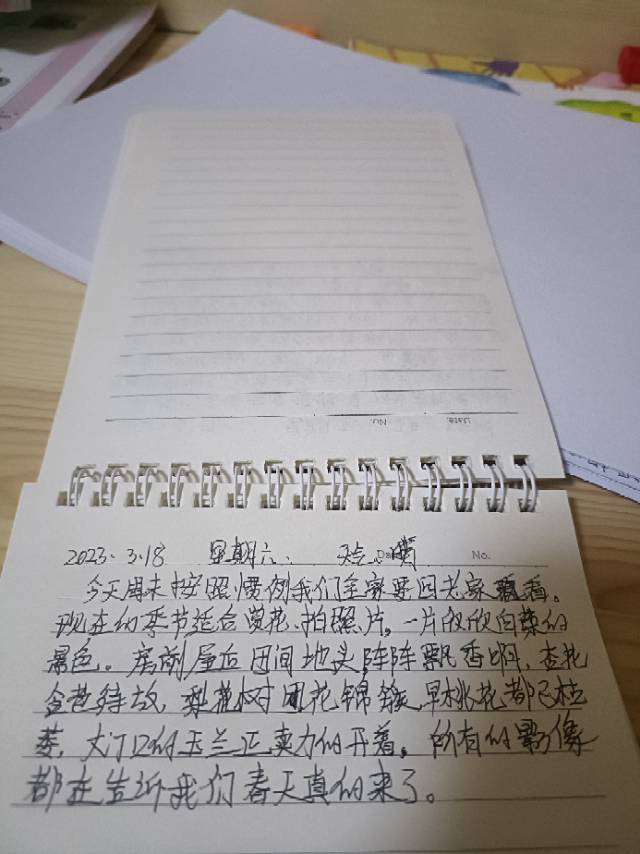 Date. No.
2023. 3.18 星期六. 天气:晴 Da No.
今天周末按照惯例我们全家要回老家看看。
现在的季节适合赏花、拍照片。一片欣欣向荣的
景色。房前屋后田间地头,阵阵飘香啊,
含苞待放,梨花树团花锦簇,早桃花都已枯
萎,大门口的玉兰正卖力的开着。所有的影像
都在告诉我们春天真的来了。